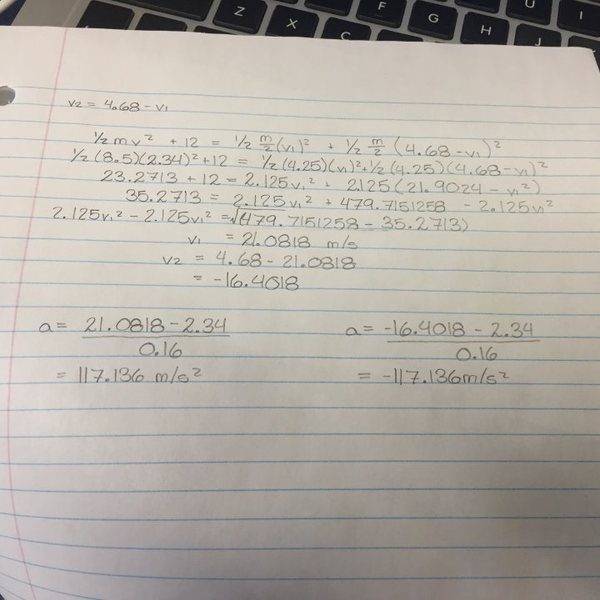 Z F G H J U I X C
v2 = 4.68 - v1
1/2 mv² + 12 = 1/2 m/2 (v1)² + 1/2 m/2 (4.68 - v1)²
1/2 (8.5)(2.34)² + 12 = 1/2 (4.25)(v1)² + 1/2 (4.25)(4.68 - v1)²
23.2713 + 12 = 2.125v1² + 2.125(21.9024 - v1²)
35.2713 = 2.125v1² + 479.7151258 - 2.125v1²
2.125v1² - 2.125v1² = √(479.7151258 - 35.2713)
v1 = 21.0818 m/s
v2 = 4.68 - 21.0818
= -16.4018
a = 21.0818 - 2.34 / 0.16 a = -16.4018 - 2.34 / 0.16
= 117.136 m/s² = -117.136 m/s²